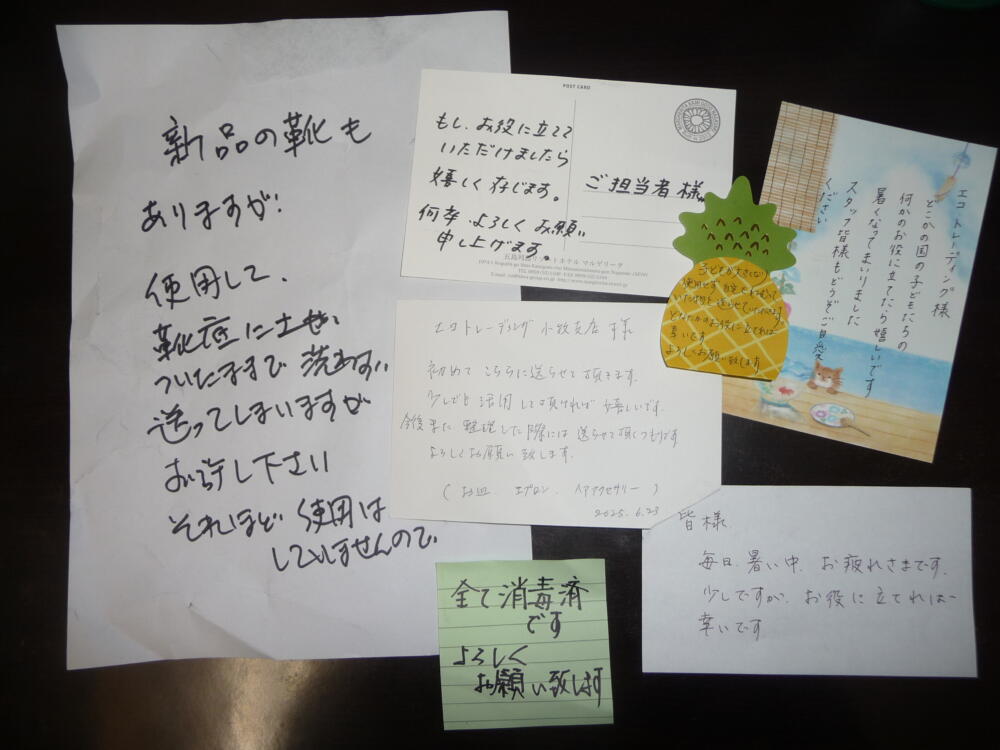 新品の靴も
ありますが、
使用して、
靴底に土が
ついたままで 洗わず、
送ってしまいますが
お許し下さい
それほど 使用は
していませんので
POST CARD
もし、お役に立てて
いただけましたら
嬉しく存じます。
何卒、よろしくお願い
申し上げます。
ご担当者様
五島列島リゾートホテル マルゲリータ
エコトレーディング様
どこかの国の子どもたちの
何かのお役に立てたら嬉しいです
暑くなってまいりました
スタッフ皆様もどうぞご自愛
ください
子どもが大きくなり
どなたかのお役に立てれば
幸いです
よろしくお願い致します
エコトレーディング 小牧支店 御中様
初めて こちらに送らせて頂きます。
少しでも 活用して頂ければ 嬉しいです。
今後また 整理した際には 送らせて頂くつもりです
よろしくお願い致します。
(お皿、エプロン、ヘアアクセサリー)
2025.6.23
皆様
毎日、暑い中、お疲れさまです。
少しですが、お役に立てれば
幸いです
全て消毒済
です
よろしく
お願い致します